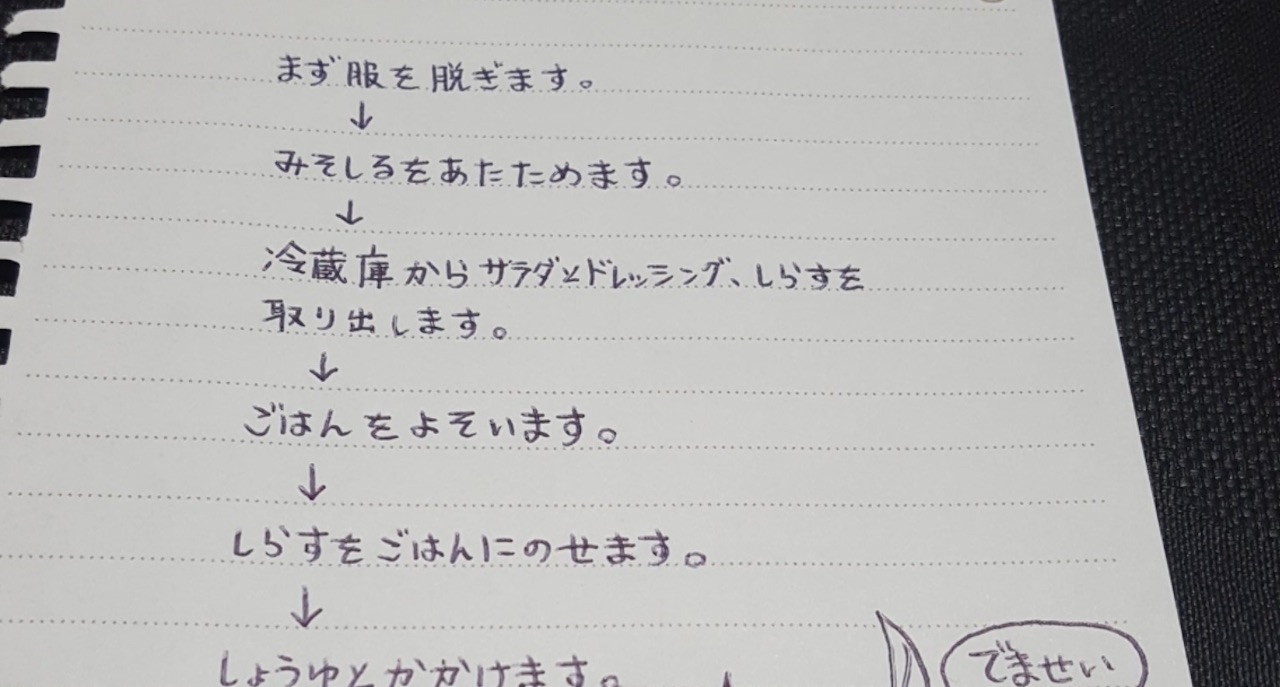 まず服を脱ぎます。
↓
みそしるをあたためます。
↓
冷蔵庫からサラダとドレッシング、しらすを
取り出します。
↓
ごはんをよそいます。
↓
しらすをごはんにのせます。
↓
しょうゆとかかけます。
でませい